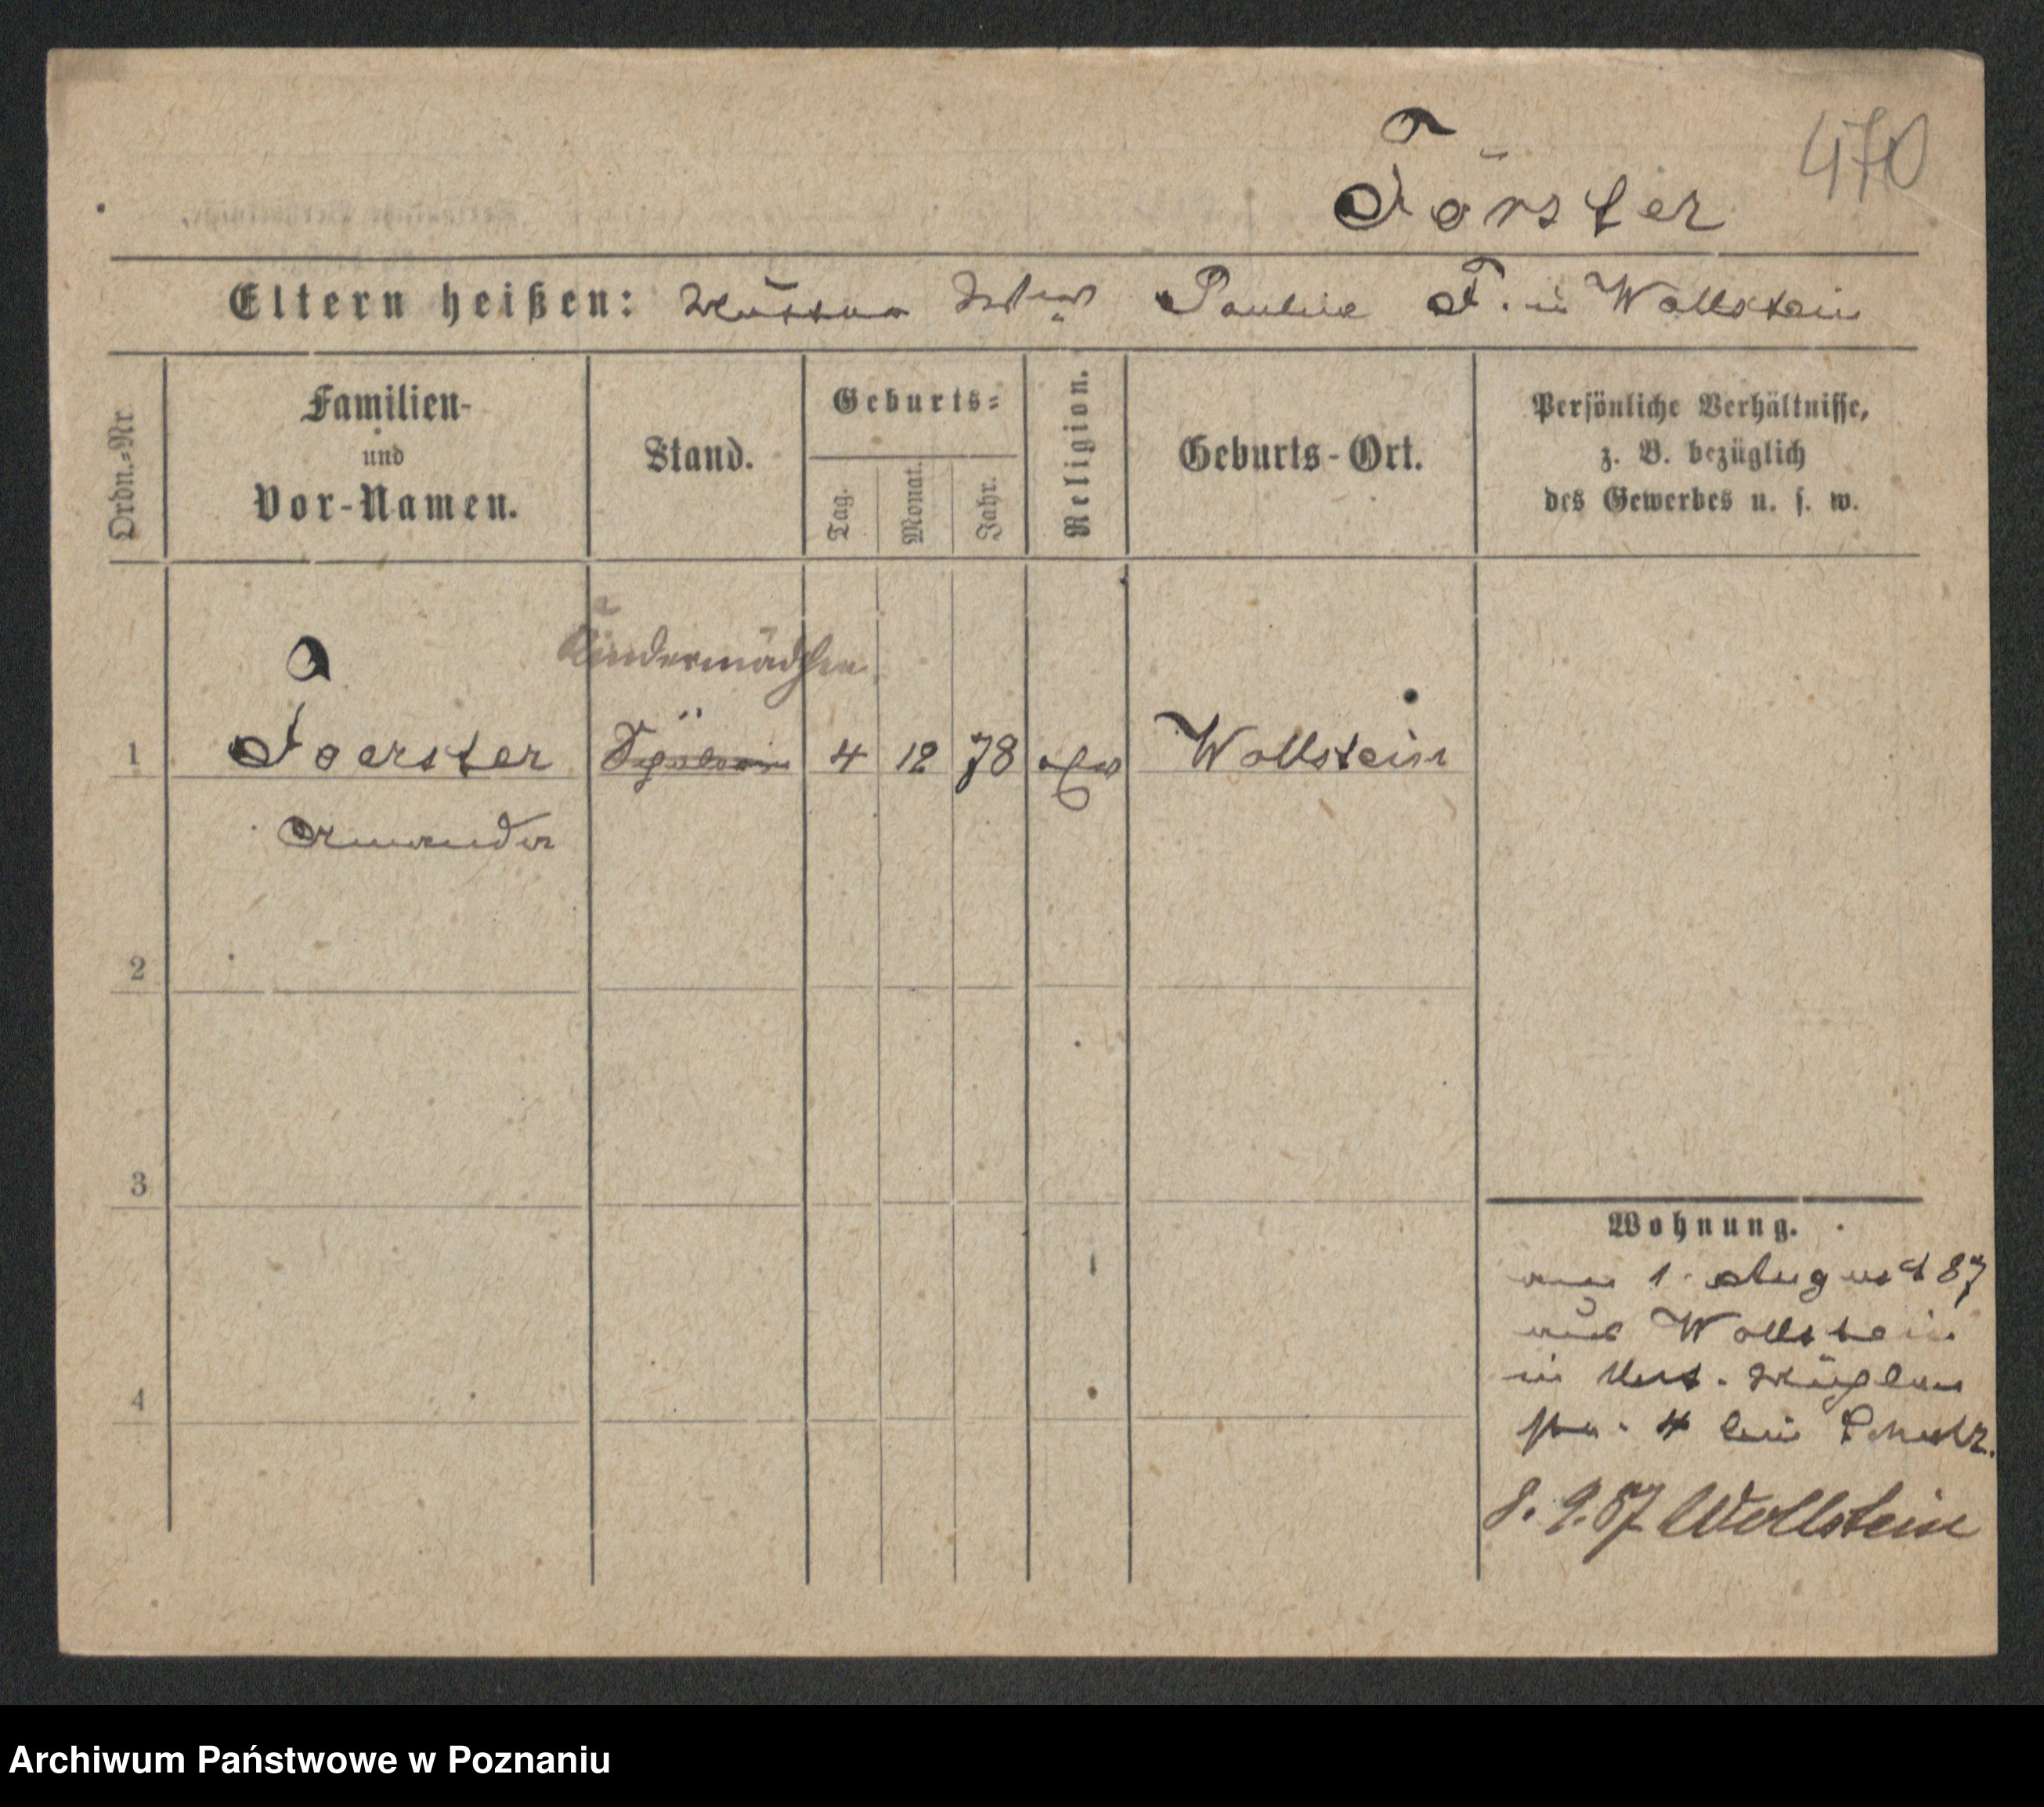 470
Förster
Eltern heißen: Pauline F. in Wollstein
Ordn.=Nr
Familien-
und
Vor-Namen.
Stand.
Geburts=
Tag.
Monat.
Jahr.
Religion.
Geburts-Ort.
Persönliche Verhältnisse,
z. B. bezüglich
des Gewerbes u. s. w.
Kindermädchen
1 Foerster Schülerin 4 12 78 Wollstein
Amanda
2
3
4
Wohnung.
am 1. August 87
aus Wollstein
in Unt. Mühlen
str. 4 bei Schulz.
8. 9. 87 Wollstein
Archiwum Państwowe w Poznaniu